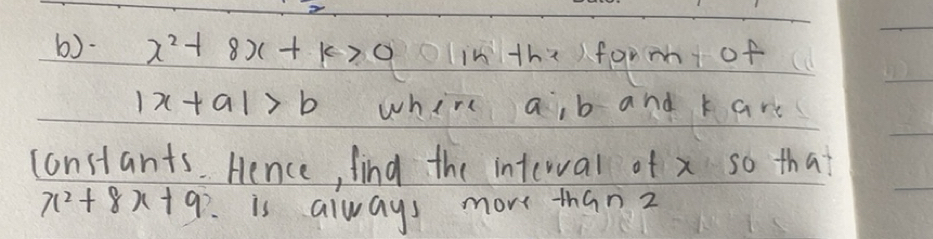 b). x² + 8x + k > 0 in the form of
|x + a| > b where a, b and k are
constants. Hence, find the interval of x so that
x² + 8x + 9. is always more than 2